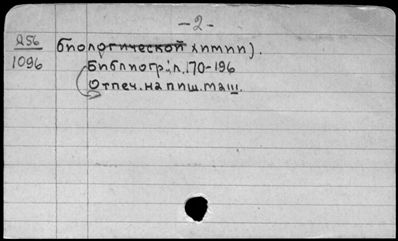 -2-
256 биологической химии).
1096 Библиогр.: л. 170-196
Отпеч. на пиш. маш.